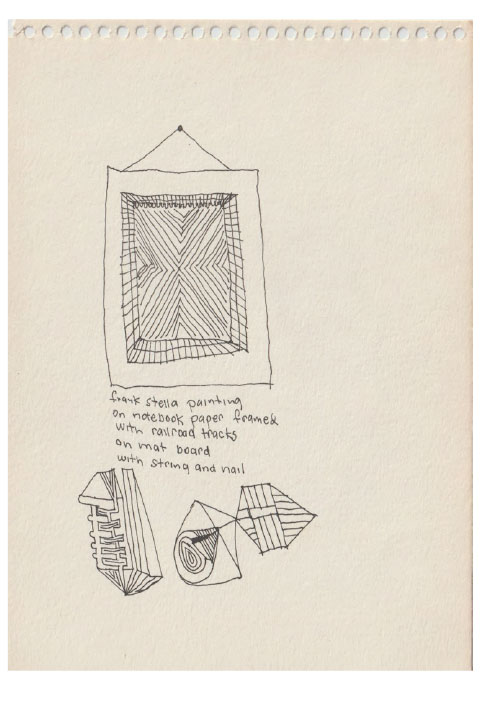 frank stella painting
on notebook paper framed
with railroad tracks
on mat board
with string and nail